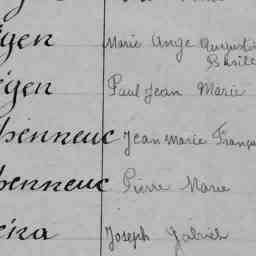 égen Marie Ange Augustin
Basile
égen Paul Jean Marie
henneuc Jean Marie François
henneuc Pierre Marie
éra Joseph Gabriel